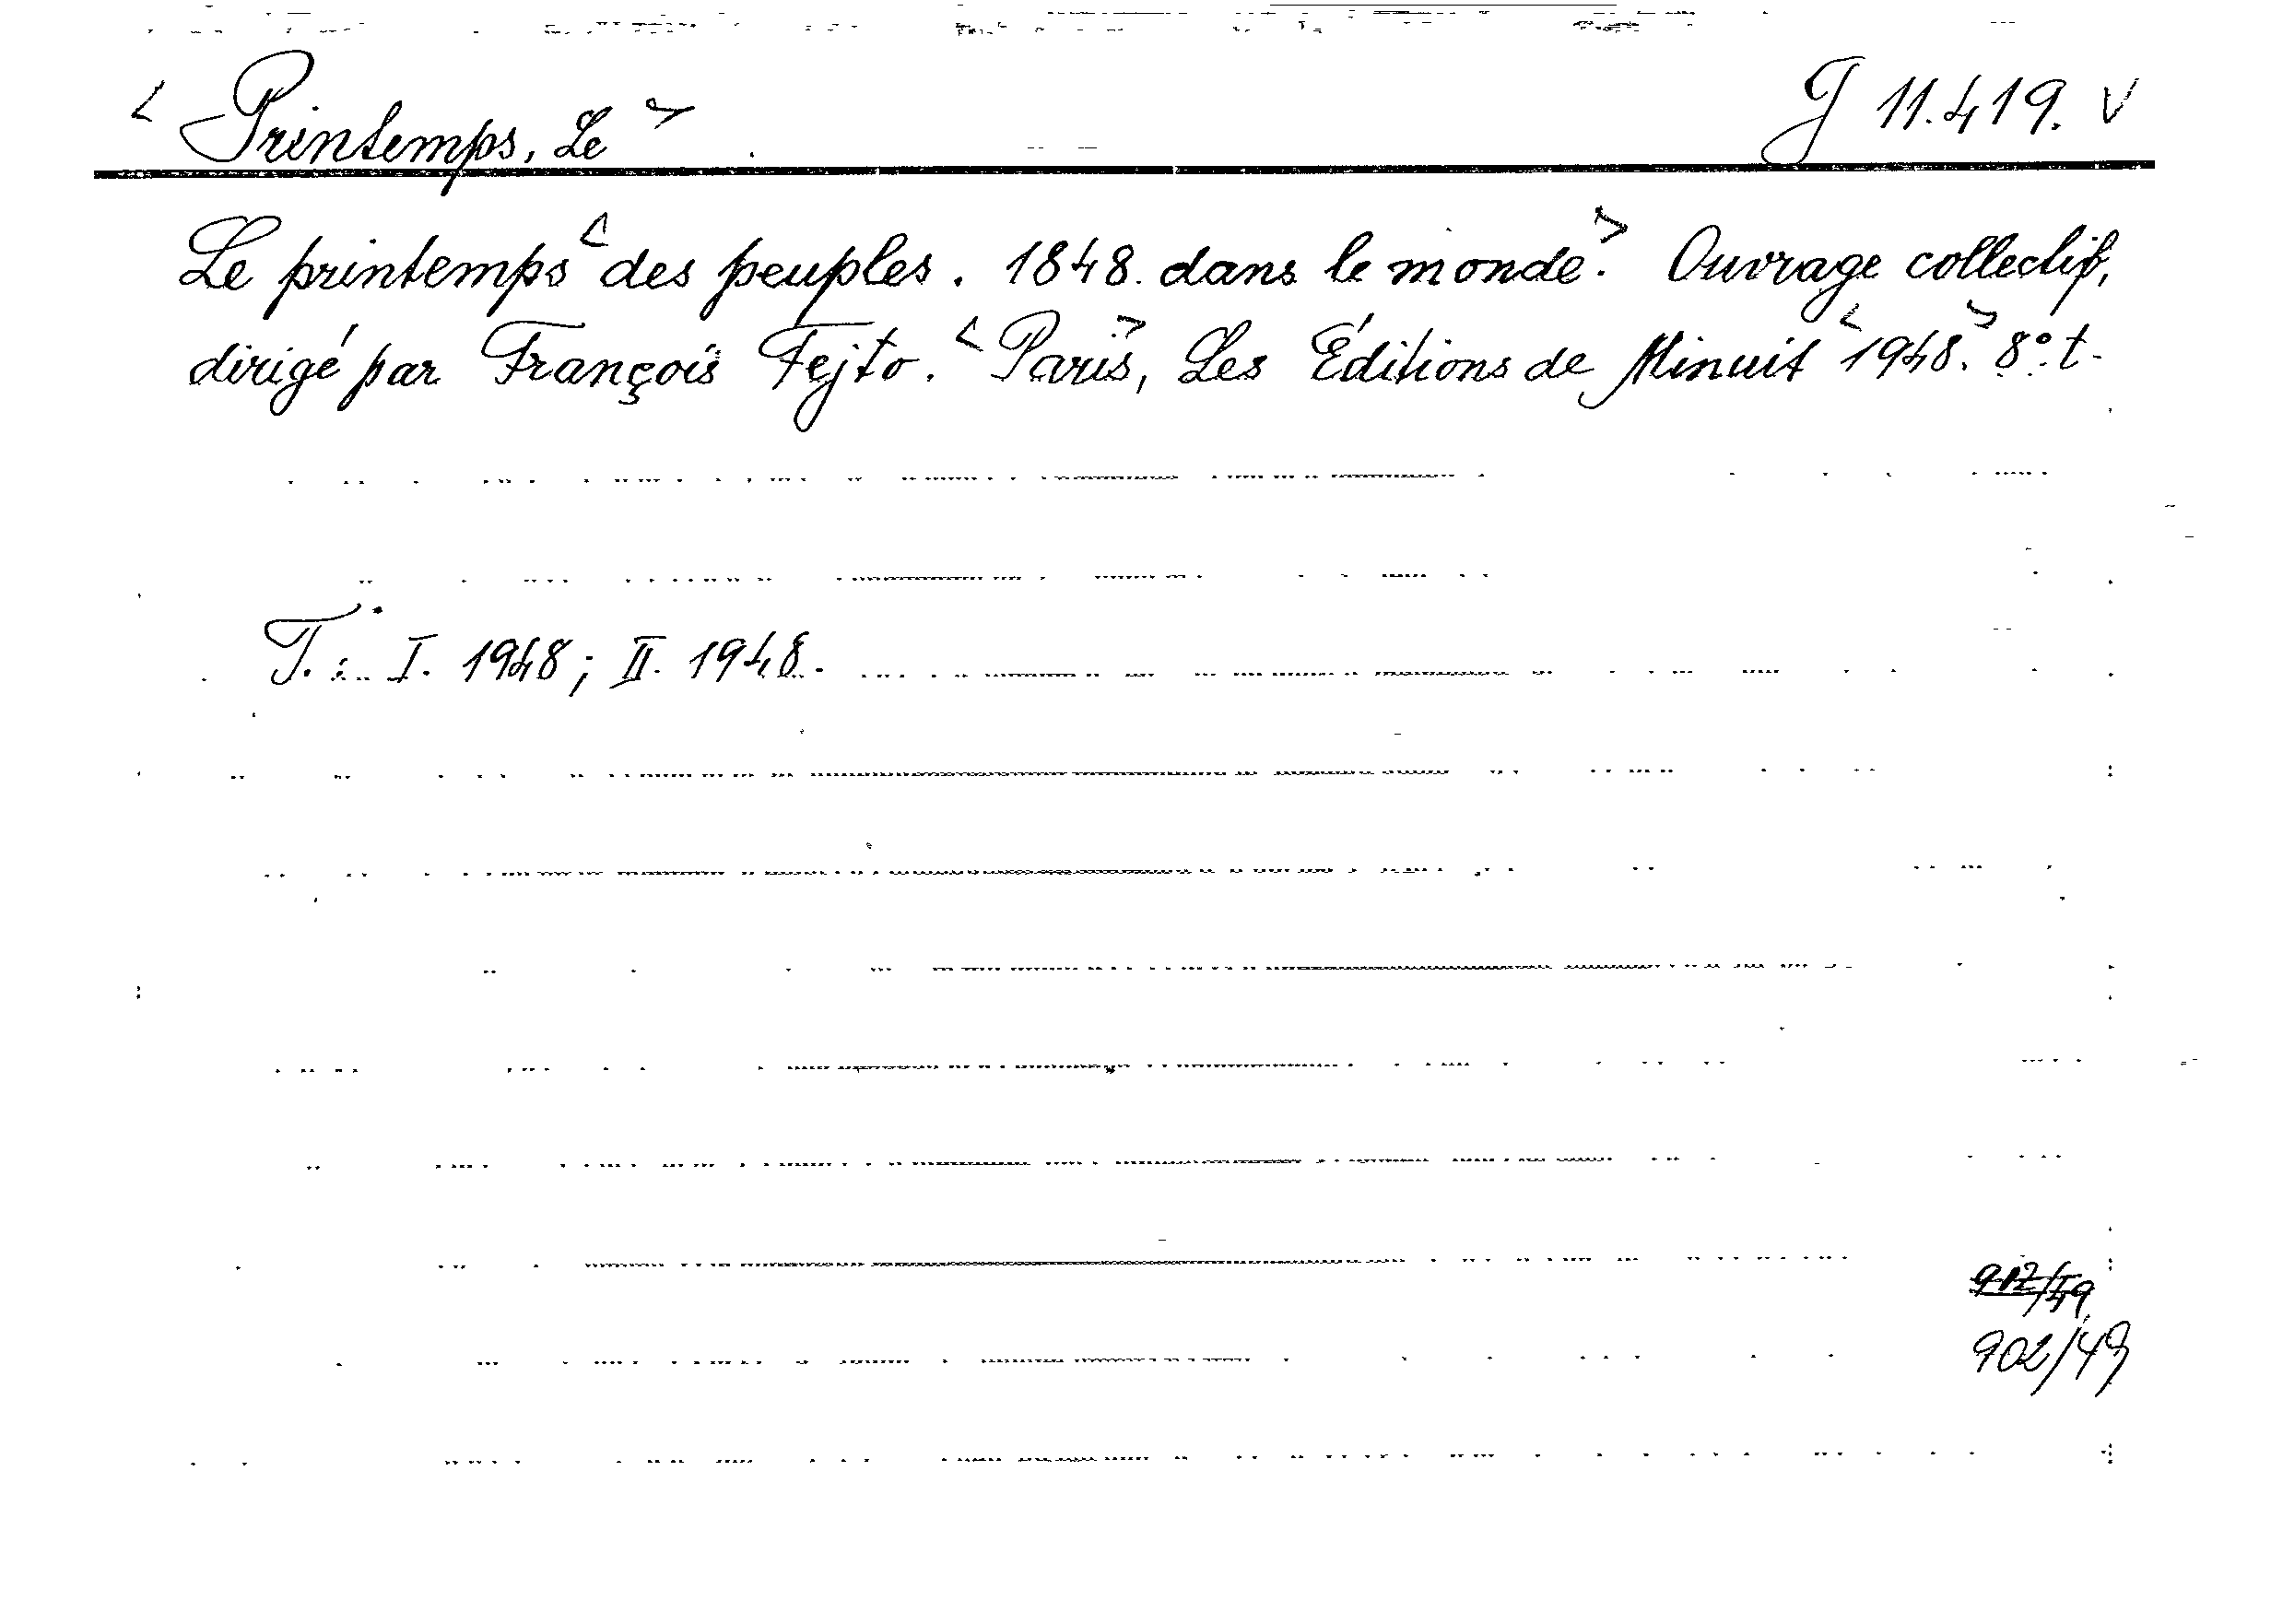 < Printemps, Le > J 11.419. V
Le printemps < des peuples. 1848. dans le monde.> Ouvrage collectif,
dirigé par François Fejto. <Paris>, Les Éditions de Minuit <1948.> 8° t.
T.: I. 1948; II. 1948.
912/49
902/49